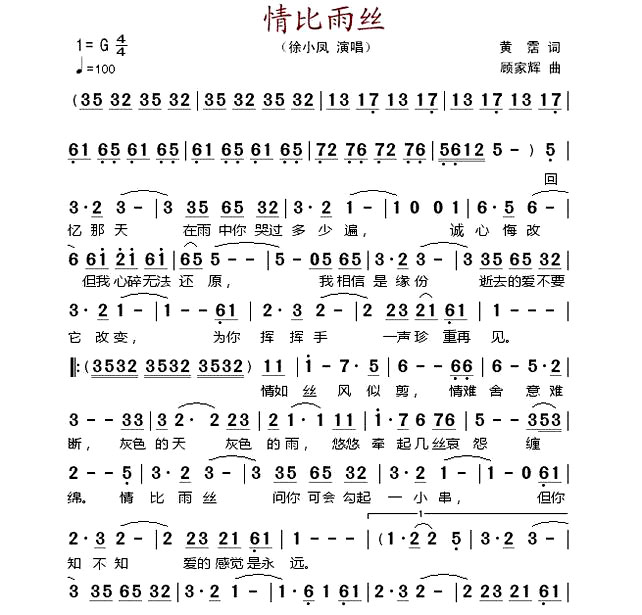 情比雨丝
1= G 4/4
（徐小凤 演唱）
黄 霑 词
♩=100
顾家辉 曲
(35 32 35 32 | 35 32 35 32 | 13 17 13 17 | 13 17 13 17 |
61 65 61 65 | 61 65 61 65 | 72 76 72 76 | 5612 5 - ) 5 |
回
3·2 3 - | 3 35 65 32 | 3·2 1 - | 1 0 0 1 | 6·5 6 - |
忆那天 在雨中你哭过多少遍， 诚心悔改
6 61 21 61 | 65 5 - | 5 - 05 65 | 3·2 3 - | 3 35 65 32 |
但我心碎无法还原， 我相信是缘份 逝去的爱不要
3· 2 1 - | 1 - - 61 | 2· 3 2 - | 2 23 21 61 | 1 - - - |
它改变， 为你挥挥手 一声珍重再见。
‖:(3532 3532 3532) 11 | 1 - 7·5 | 6 - - 66 | 6 - 5·2 |
情如丝风似剪，情难舍意难
3 - - 33 | 3 2· 2 23 | 2 1· 1 - | 1·7 6 76 | 5 - - 353 |
断，灰色的天灰色的雨，悠悠牵起几丝哀怨缠
2 - - 5 | 3·2 3 - | 3 35 65 32 | 3·2 1 - | 1 - 0 61 |
绵。情比雨丝 问你可会勾起一小串，但你
2·3 2 - | 2 23 21 61 | 1 - - - | (1·2 2 5 | 3·2 3 - |
1
知不知 爱的感觉是永远。
3 35 65 32 | 3 2· 1 - | 1·6 1 61 | 2·3 2 - | 2 35 32 61 |